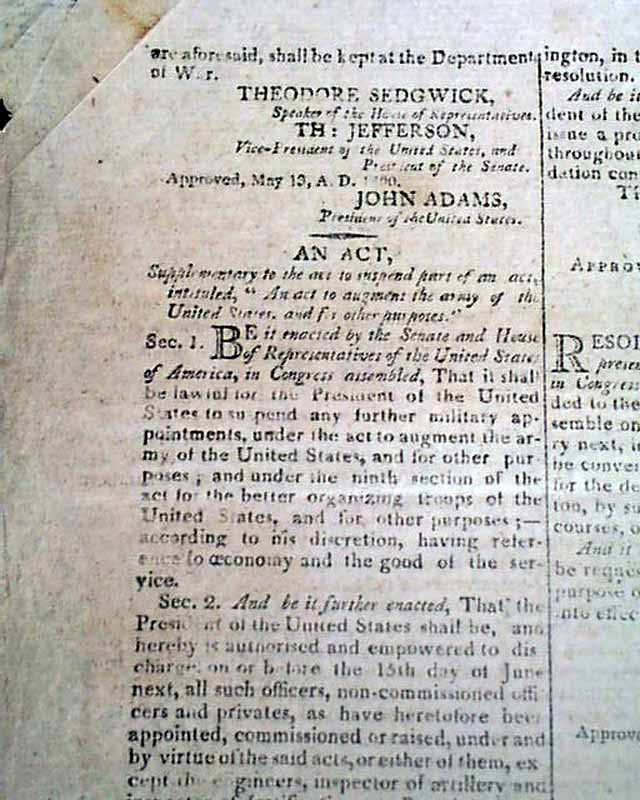 are aforesaid, shall be kept at the Department
of War.
THEODORE SEDGWICK,
Speaker of the House of Representatives.
TH: JEFFERSON,
Vice-President of the United States, and
President of the Senate.
Approved, May 13, A. D. 1800.
JOHN ADAMS,
President of the United States.
AN ACT,
Supplementary to the act to suspend part of an act,
intituled, "An act to augment the army of the
United States, and for other purposes."
Sec. 1. BE it enacted by the Senate and House
of Representatives of the United States
of America, in Congress assembled, That it shall
be lawful for the President of the United
States to suspend any further military ap-
pointments, under the act to augment the ar-
my of the United States, and for other pur-
poses; and under the ninth section of the
act for the better organizing troops of the
United States, and for other purposes;—
according to his discretion, having refer-
ence to œconomy and the good of the ser-
vice.
Sec. 2. And be it further enacted, That the
President of the United States shall be, and
hereby is authorised and empowered to dis
charge on or before the 15th day of June
next, all such officers, non-commissioned offi
cers and privates, as have heretofore been
appointed, commissioned or raised, under and
by virtue of the said acts, or either of them, ex
cept the engineers, inspector of artillery and
ington, in t
resolution.
And be it
dent of the
issue a pro
throughout
dation con
Ti
APPROV
RESOL
presen
in Congress
ded to the
semble on
ry next, i
be conve
for the de
too, by su
courses, o
And it
be reque
purpose o
into effec
Approve